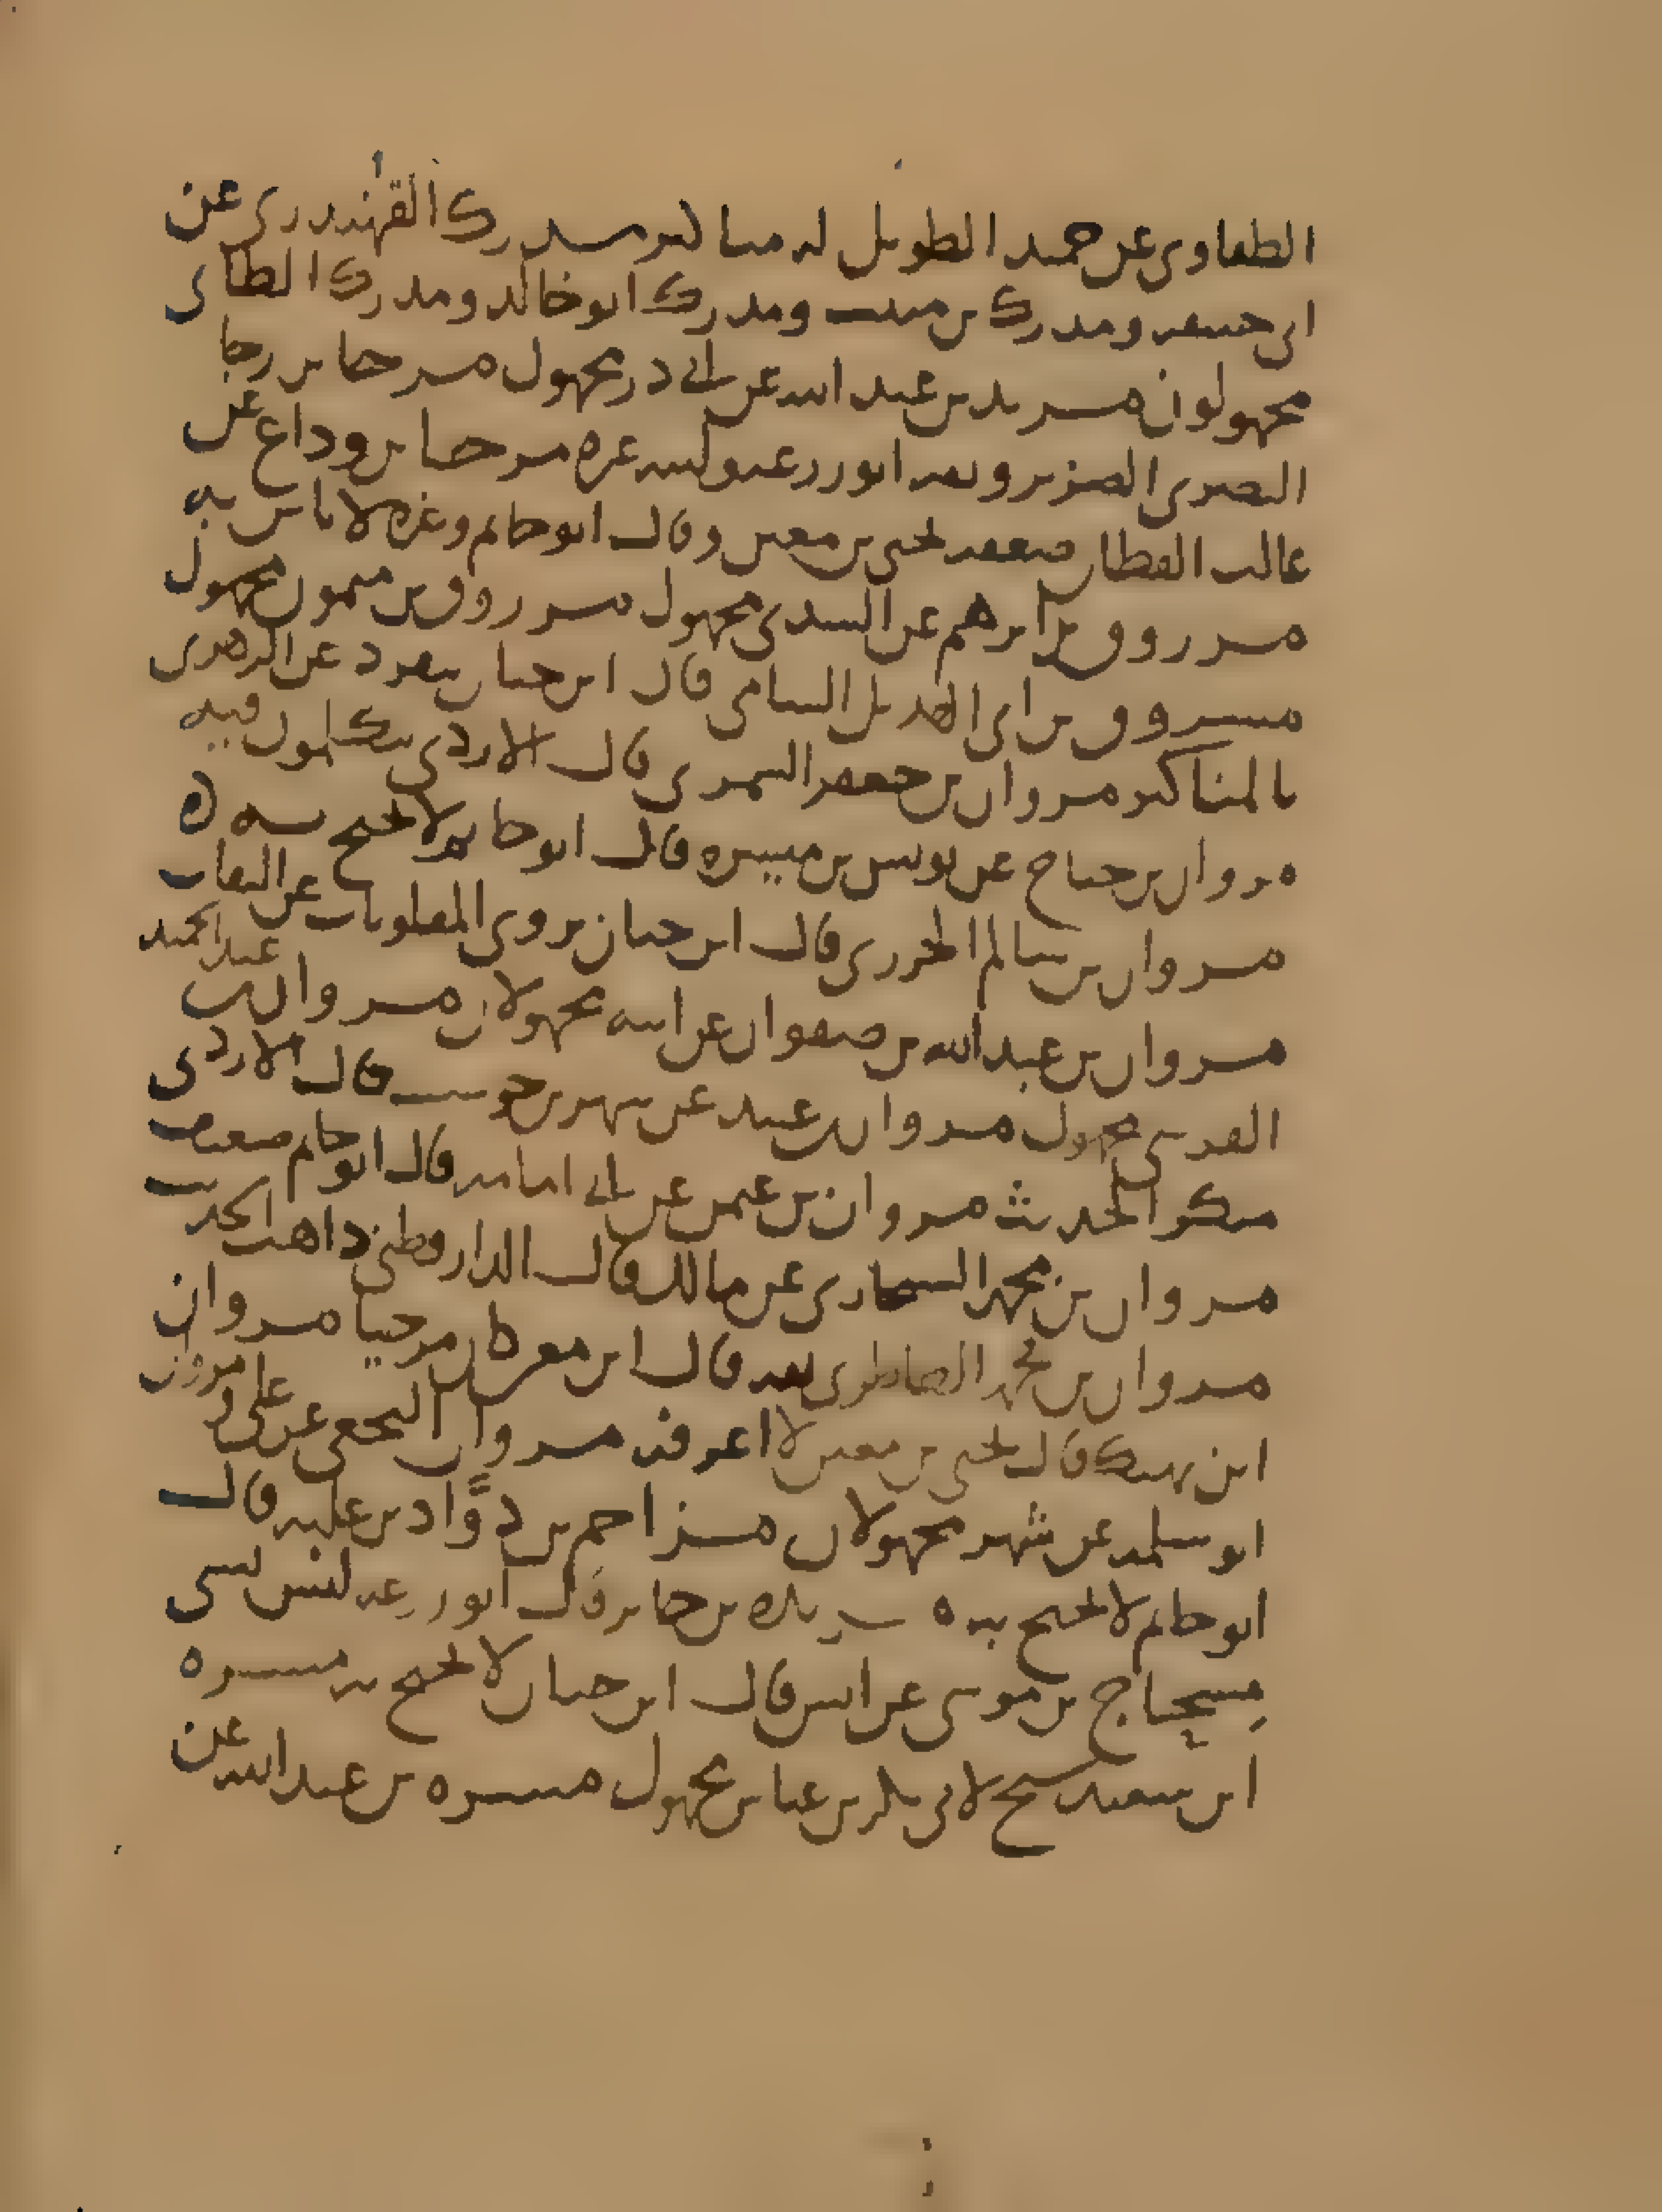 الطفاوي عن حميد الطويل له مناكير مدرك القهندزي عن
ابي حنيفه ومدرك بن منيب ومدرك ابو خالد ومدرك الطائي
مجهولون مرثد بن عبد الله عن ابي ذر مجهول مرجا بن رجا
البصري الضرير وثقه ابو زرعه ولينه غيره مرحبا بن وداع عن
غالب القطان ضعفه يحيى بن معين وقال ابو حاتم وغيره لا باس به
مرزوق بن ابرهيم عن السدي مجهول مرزوق بن ميمون مجهول
مرزوق بن ابي الهذيل الشامي قال ابن حبان ينفرد عن الزهري
بالمناكير مروان بن جعفر السمري قال الازدي يتكلمون فيه
مروان بن جناح عن يونس بن ميسره قال ابو حاتم لا يحتج به
مروان بن سالم الجزري قال ابن حبان يروي المقلوبات عن الثقات
مروان بن عبد الله بن صفوان عن ابيه مجهولان مروان بن عبد الحميد
القرشي مجهول مروان بن عبيد عن شهر بن حوشب قال الازدي
منكر الحديث مروان بن عمر عن ابي امامه قال ابو حاتم ضعيف
مروان بن محمد السنجاري عن مالك قال الدارقطني ذاهب الحديث
مروان بن محمد الطاطري ثقه قال ابن معين كان مرجيا مروان
ابن نهيك قال يحيى بن معين لا اعرفه مروان النخعي عن علي مروان
ابو سلمه عن شهر مجهولان مزاحم بن ذوّاد بن علبه قال
ابو حاتم لا يحتج به مزيده بن جابر قال ابو زرعه ليس بشي
مسحاج بن موسى عن انس قال ابن حبان لا يحتج به مسره
ابن سعيد شيخ لابي بكر بن عياش مجهول مسره بن عبد الله عن